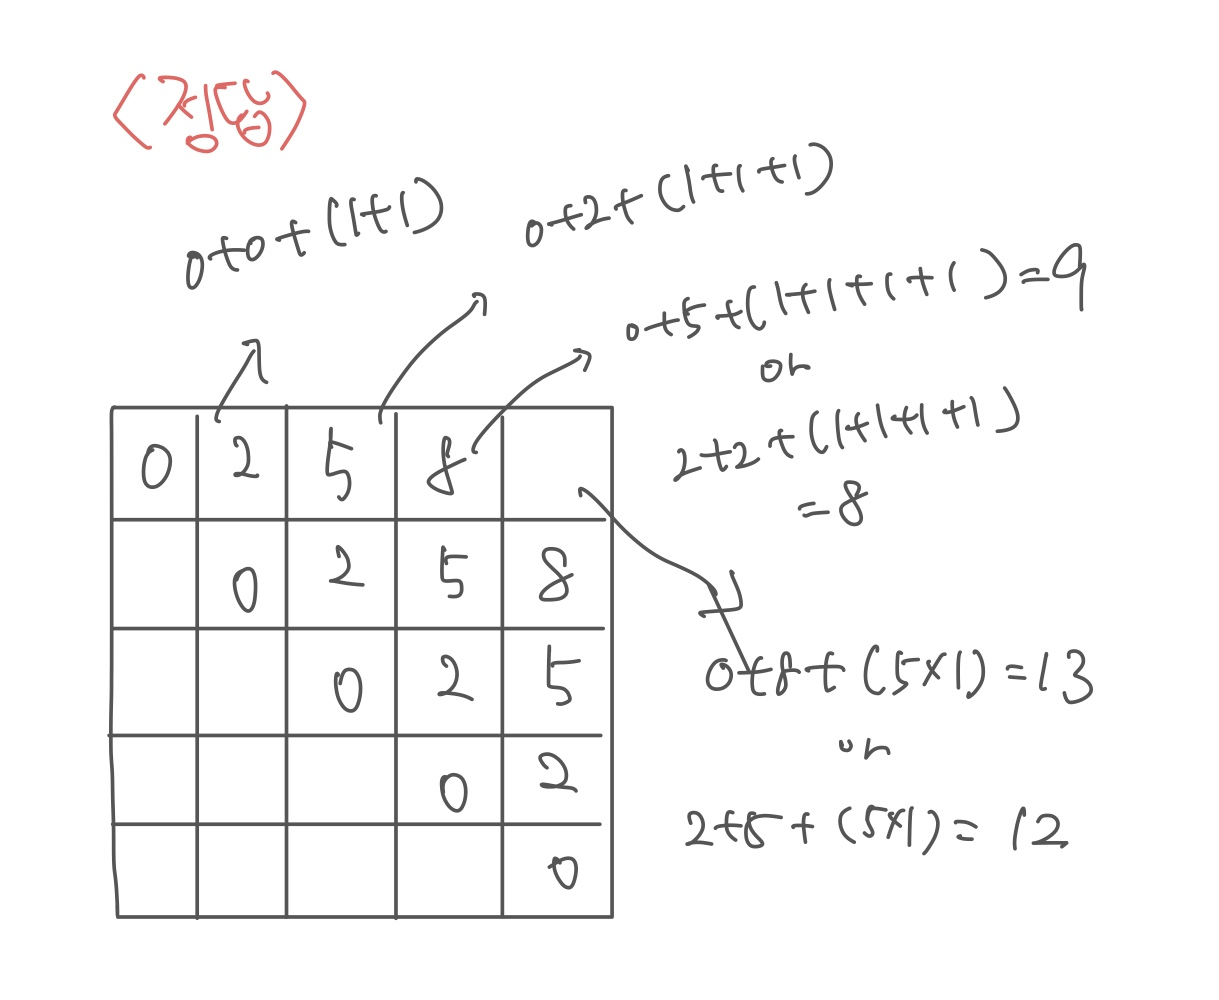 <정답>
0+0+(1+1)
0+2+(1+1+1)
0+5+(1+1+1+1)=9
or
2+2+(1+1+1+1)
=8
0 2 5 8
0 2 5 8
0 2 5
0 2
0
0+8+(5×1)=13
or
2+5+(5×1)=12